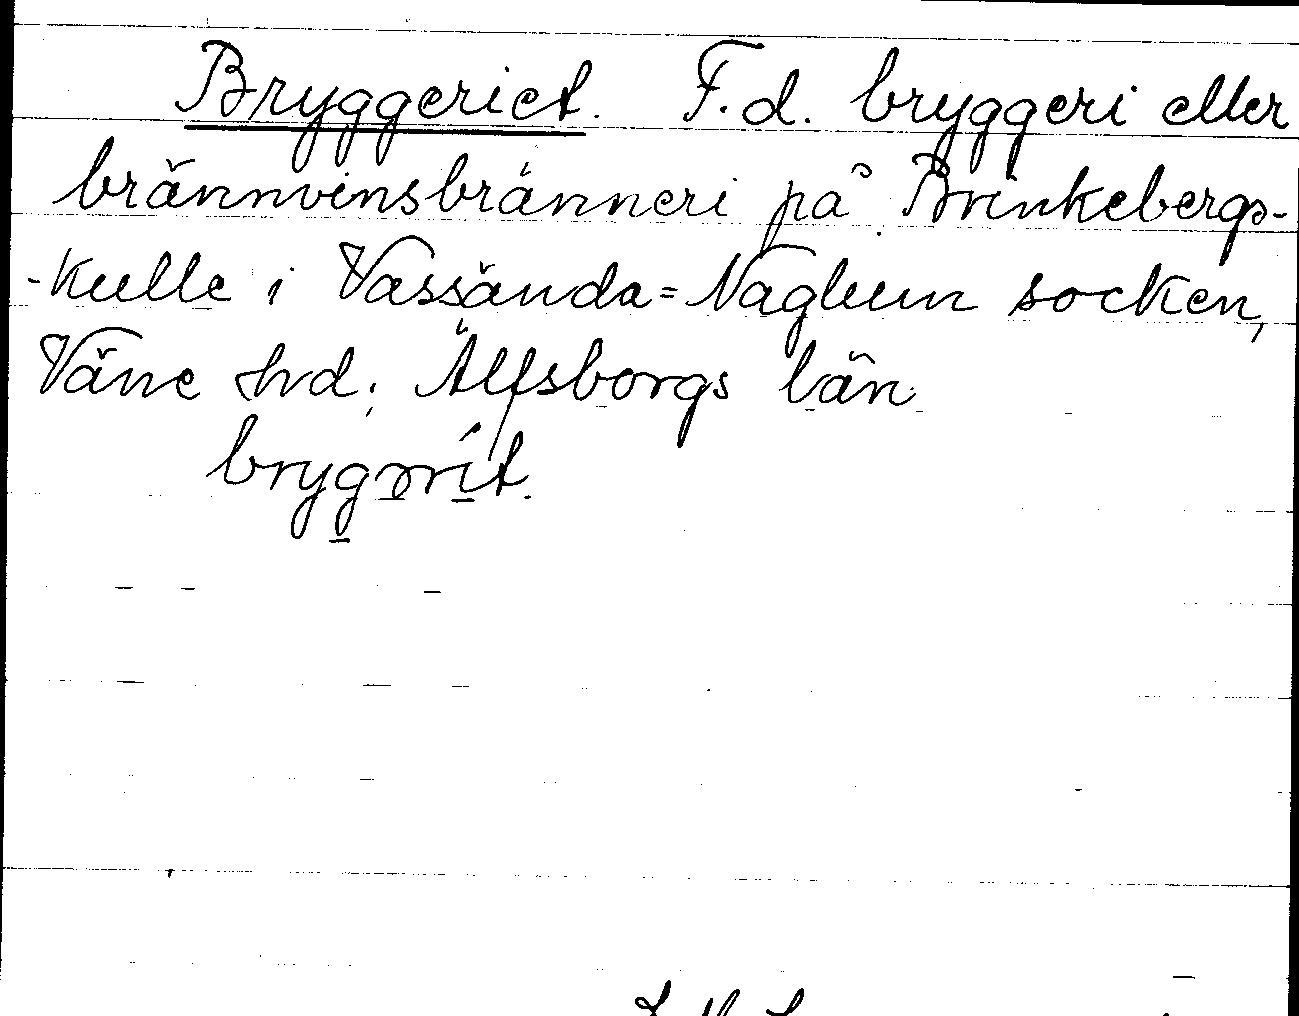 Bryggeriet. F.d. bryggeri eller
brännvinsbränneri på Brinkebergs-
-kulle i Vassända=Naglum socken,
Väne hd; Älfsborgs län.
brygərít.